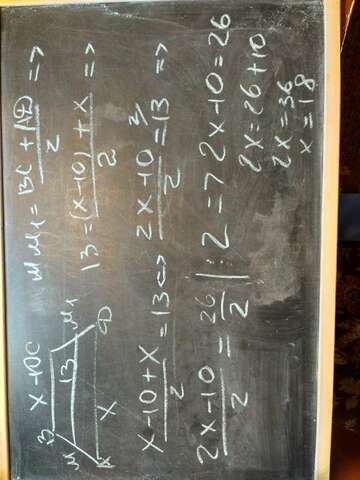 B x-10 C MM₁ = BC + AD / 2 =>
M 13 M₁ 13 = (x-10) + x / 2 =>
A x D
x-10+x / 2 = 13 <=> 2x-10 / 2 = 13 =>
2x-10 / 2 = 26 / 2 | : 2 => 2x-10 = 26
2x = 26+10
2x = 36
x = 18